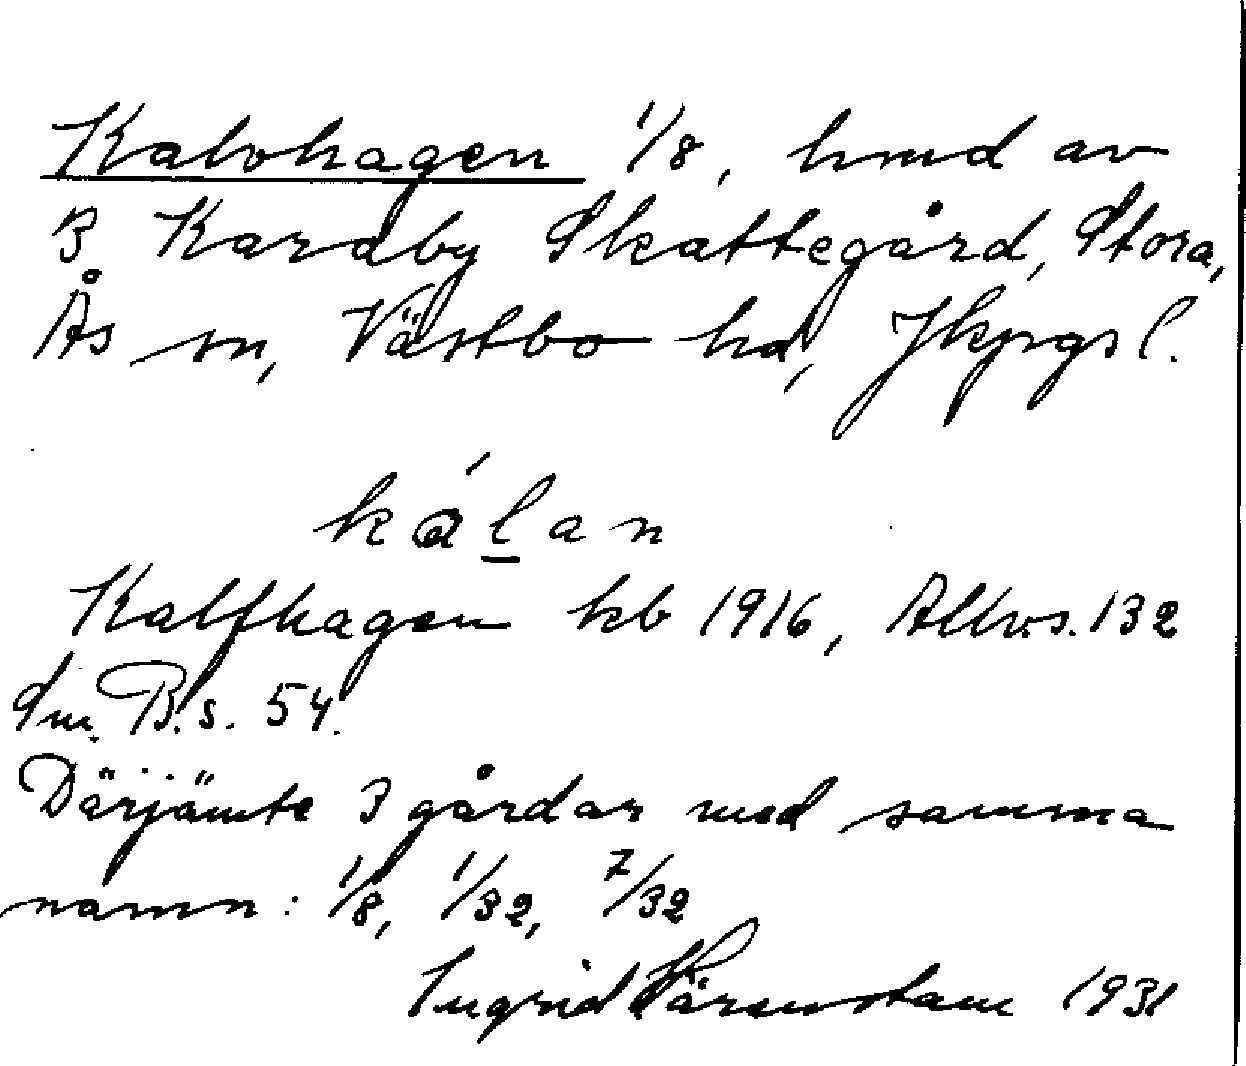 Kalvhagen 1/8, hmd av
3 Karaby Skattegård, Stora,
Ås sn, Västbo hd, Jkpgs l.
kálan
Kalfhagen kb 1916, Allm.s. 132
Sm. B.s. 54.
Därjämte 3 gårdar med samma
namn: 1/8, 1/32, 7/32
Ingrid Wärnstam 1931